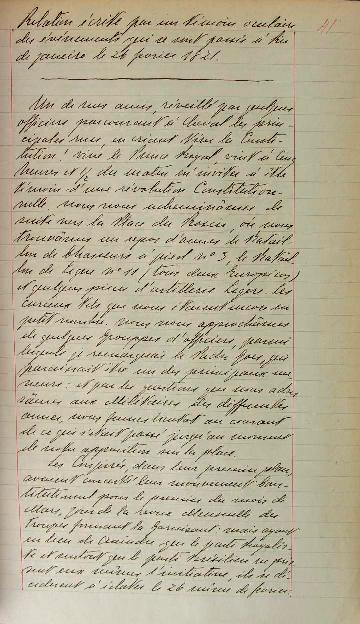 41
Relation écrite par un témoin oculaire
des événements qui se sont passés à Rio
de janeiro le 26 fevrier 1821.
Un de mes amis réveillé par quelques
officiers parcourant à cheval les prin-
cipales rues, en criant Vive la Consti-
tution! vive le Prince Royal, vint à cinq
heures et ½ du matin m'inviter à être
témoin d'une révolution Constitution-
nelle, nous nous acheminâmes de
suite vers la Place du Rocio, où nous
trouvâmes un repos d'armes le Batail
lon de Chasseurs à pied nº 3, le Batail
lon de Ligne nº 11 (tous deux Européens)
et quelques pièces d'artillerie légère. Les
curieux tels que nous étaient encore en
petit nombre, nous nous approchâmes
de quelques grouppes d'officiers, parmi
lesquels je remarquais le Padre Gois, qui
paraissait être un des principaux me
neurs: et par les questions que nous adres
sâmes aux Militaires des differentes
armes, nous fumes bientôt au courant
de ce qui s'etait passé jusqu'au moment
de notre apparition sur la place.
Les Conjurés, dans leur premier plan,
avaient concerté leur mouvement Cons-
titutionnel pour le premier du mois de
Mars, jour de la revue mensuelle des
troupes formant la garnison: mais ayant
eu lieu de craindre que le parti royalis-
te et surtout que le parti brésilien ne pris
sent eux mêmes l'initiative, ils se dé-
cidèrent à éclater le 26 même de fevrier.